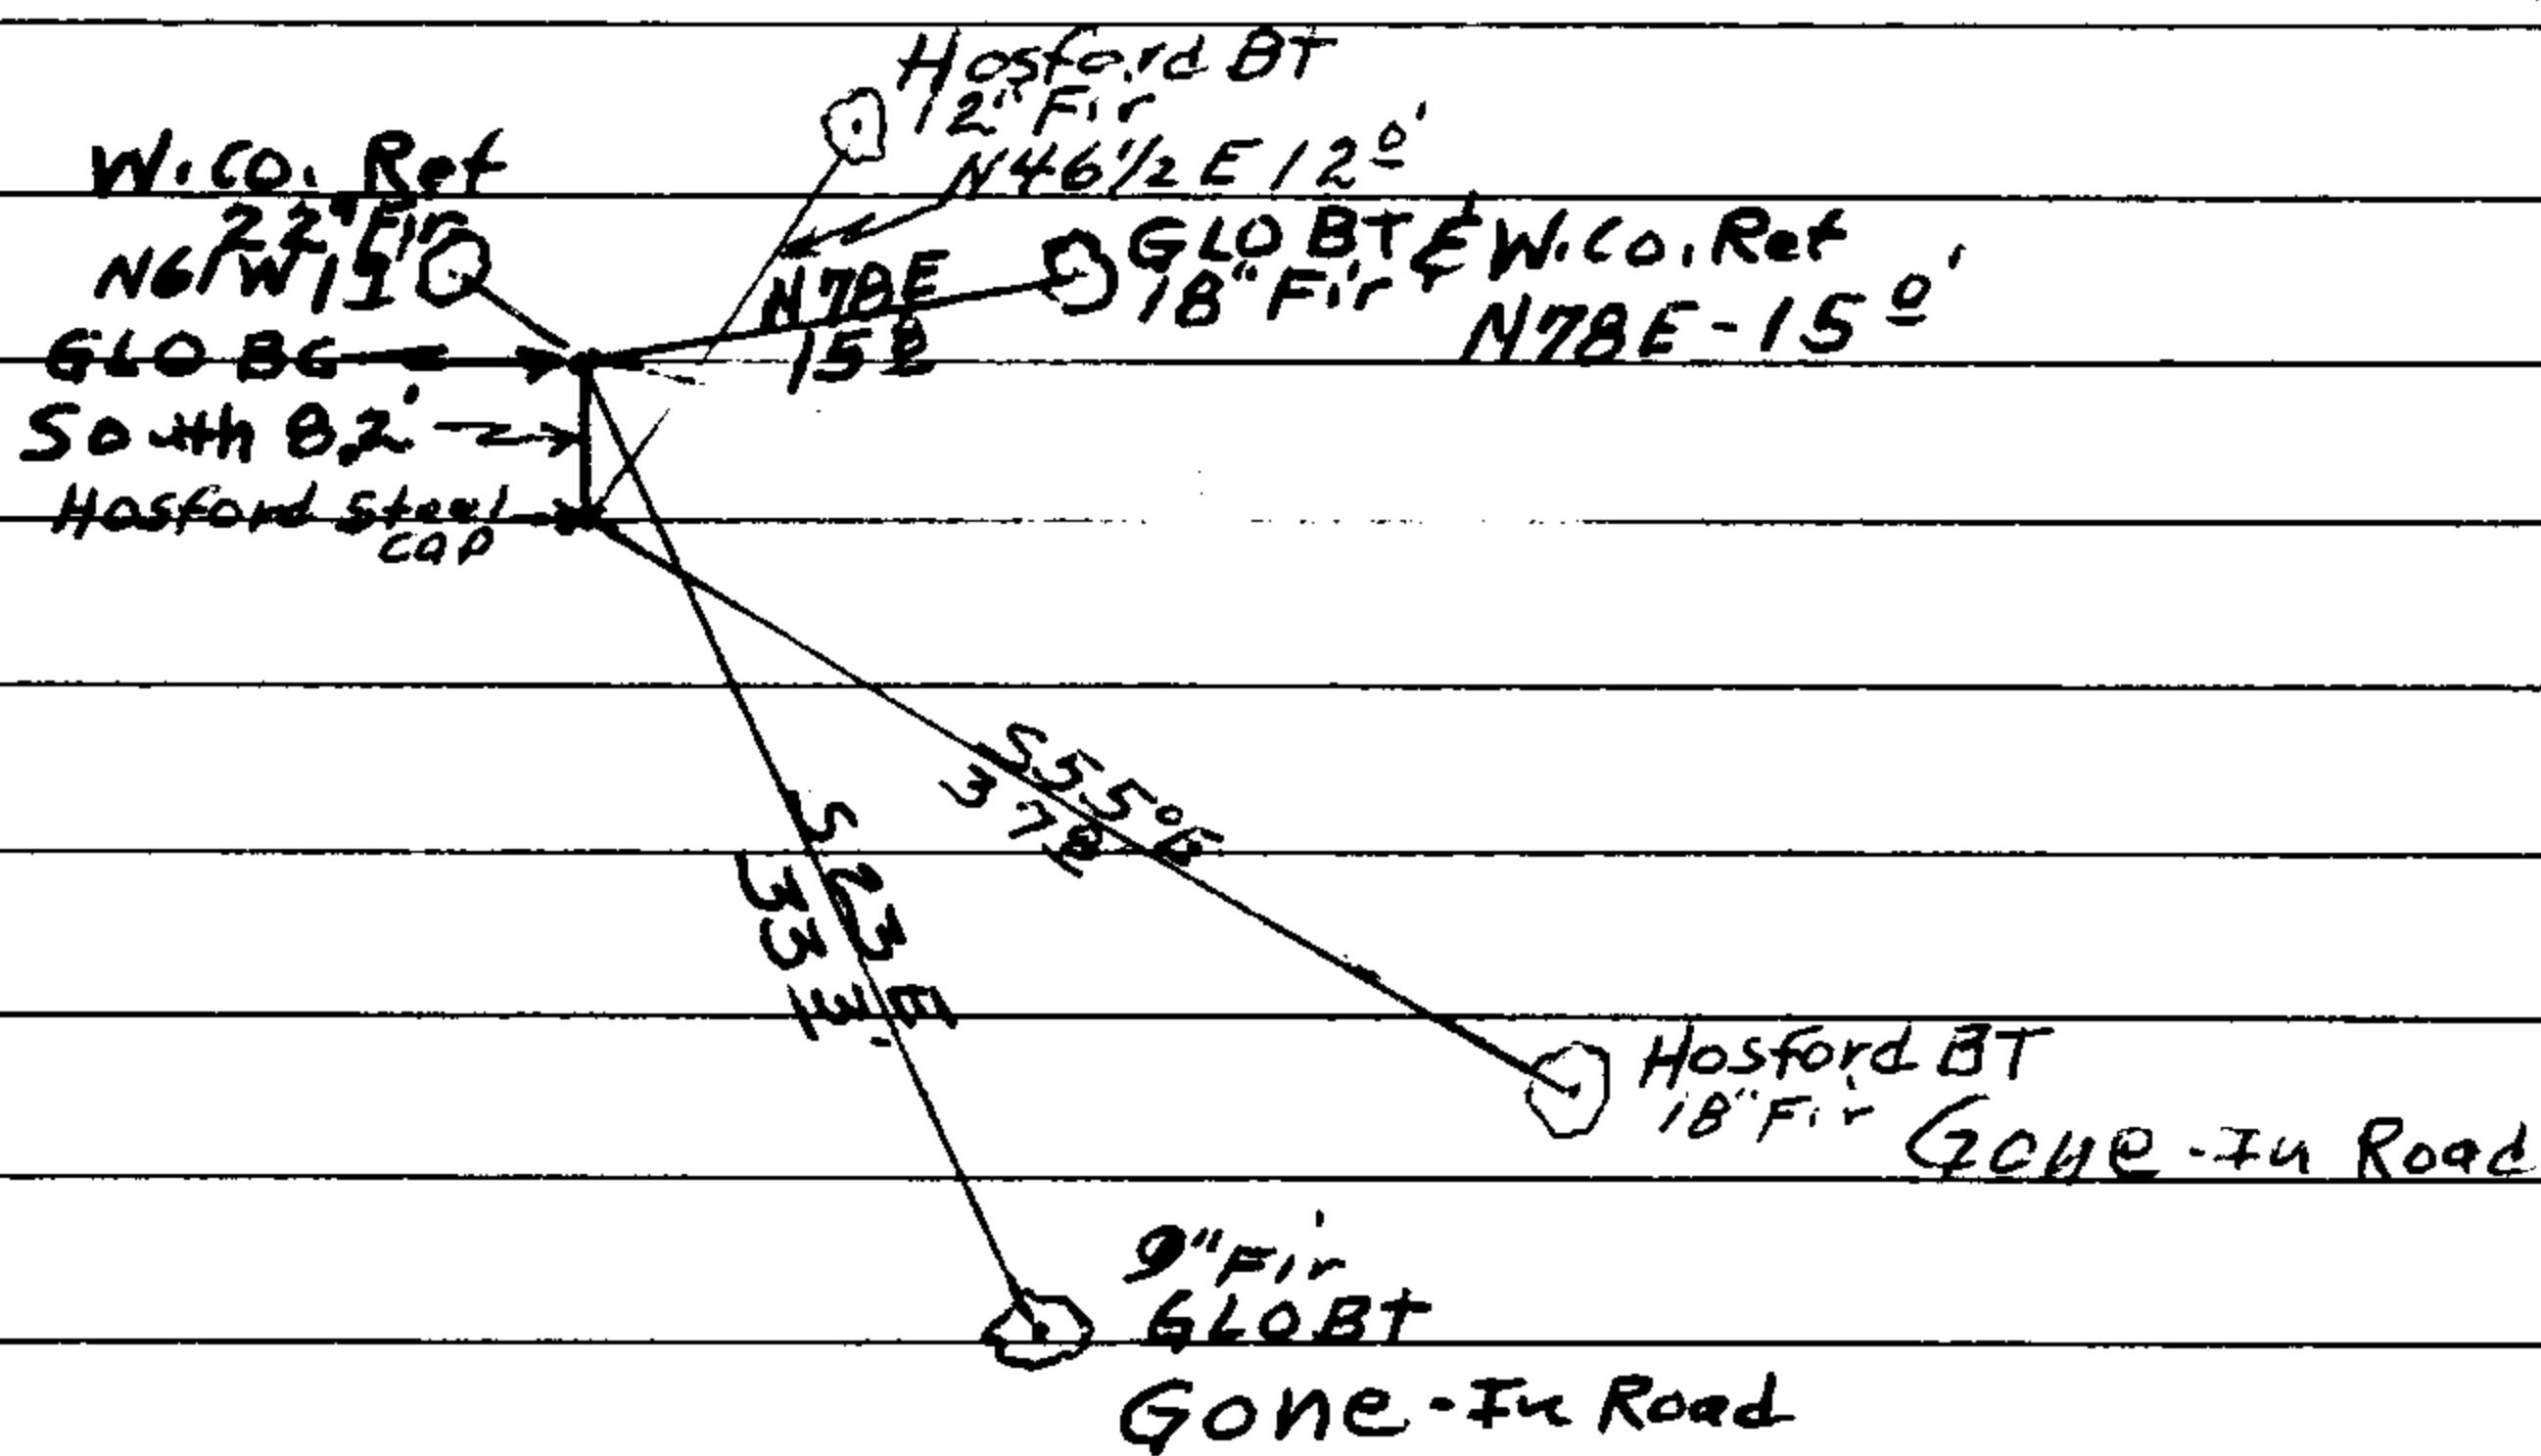 Hosford BT
12" Fir
N46½ E 12 0'
W. Co. Ref
22" Fir
N61W
GLO BT & W. Co. Ref
18" Fir
N78E - 15 0'
N78E
15
GLO BG
South 8.2'
Hosford Steel
cap
S55°E
37
S 23 E
33 3'
Hosford BT
18" Fir
Gone - In Road
9" Fir
GLO BT
Gone - In Road